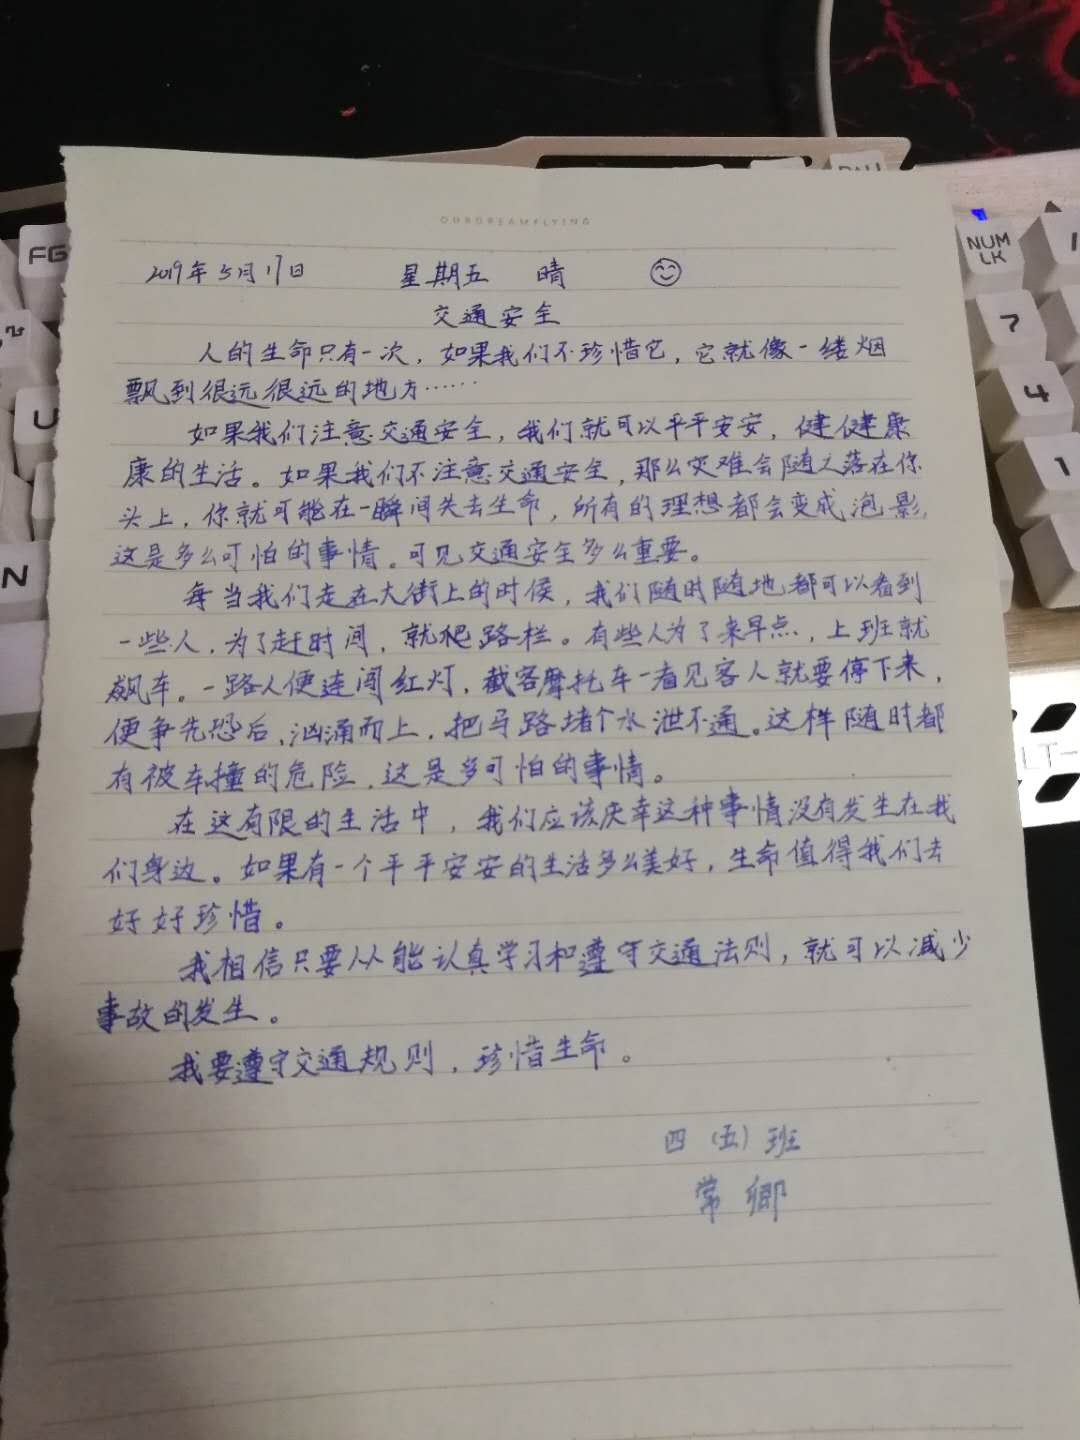 OURDREAMFLYING
2019年5月17日 星期五 晴
交通安全
人的生命只有一次，如果我们不珍惜它，它就像一缕烟
飘到很远很远的地方……
如果我们注意交通安全，我们就可以平平安安，健健康
康的生活。如果我们不注意交通安全，那么灾难会随之落在你
头上，你就可能在一瞬间失去生命，所有的理想都会变成泡影，
这是多么可怕的事情。可见交通安全多么重要。
每当我们走在大街上的时候，我们随时随地都可以看到
一些人，为了赶时间，就爬路栏。有些人为了来早点，上班就
飙车。一路人便连闯红灯，截客摩托车一看见客人就要停下来，
便争先恐后，汹涌而上，把马路堵个水泄不通。这样随时都
有被车撞的危险，这是多可怕的事情。
在这有限的生活中，我们应该庆幸这种事情没有发生在我
们身边。如果有一个平平安安的生活多么美好，生命值得我们去
好好珍惜。
我相信只要人人能认真学习和遵守交通法则，就可以减少
事故的发生。
我要遵守交通规则，珍惜生命。
四（五）班
常卿
FG
U
N
NUM
LK
7
4
1